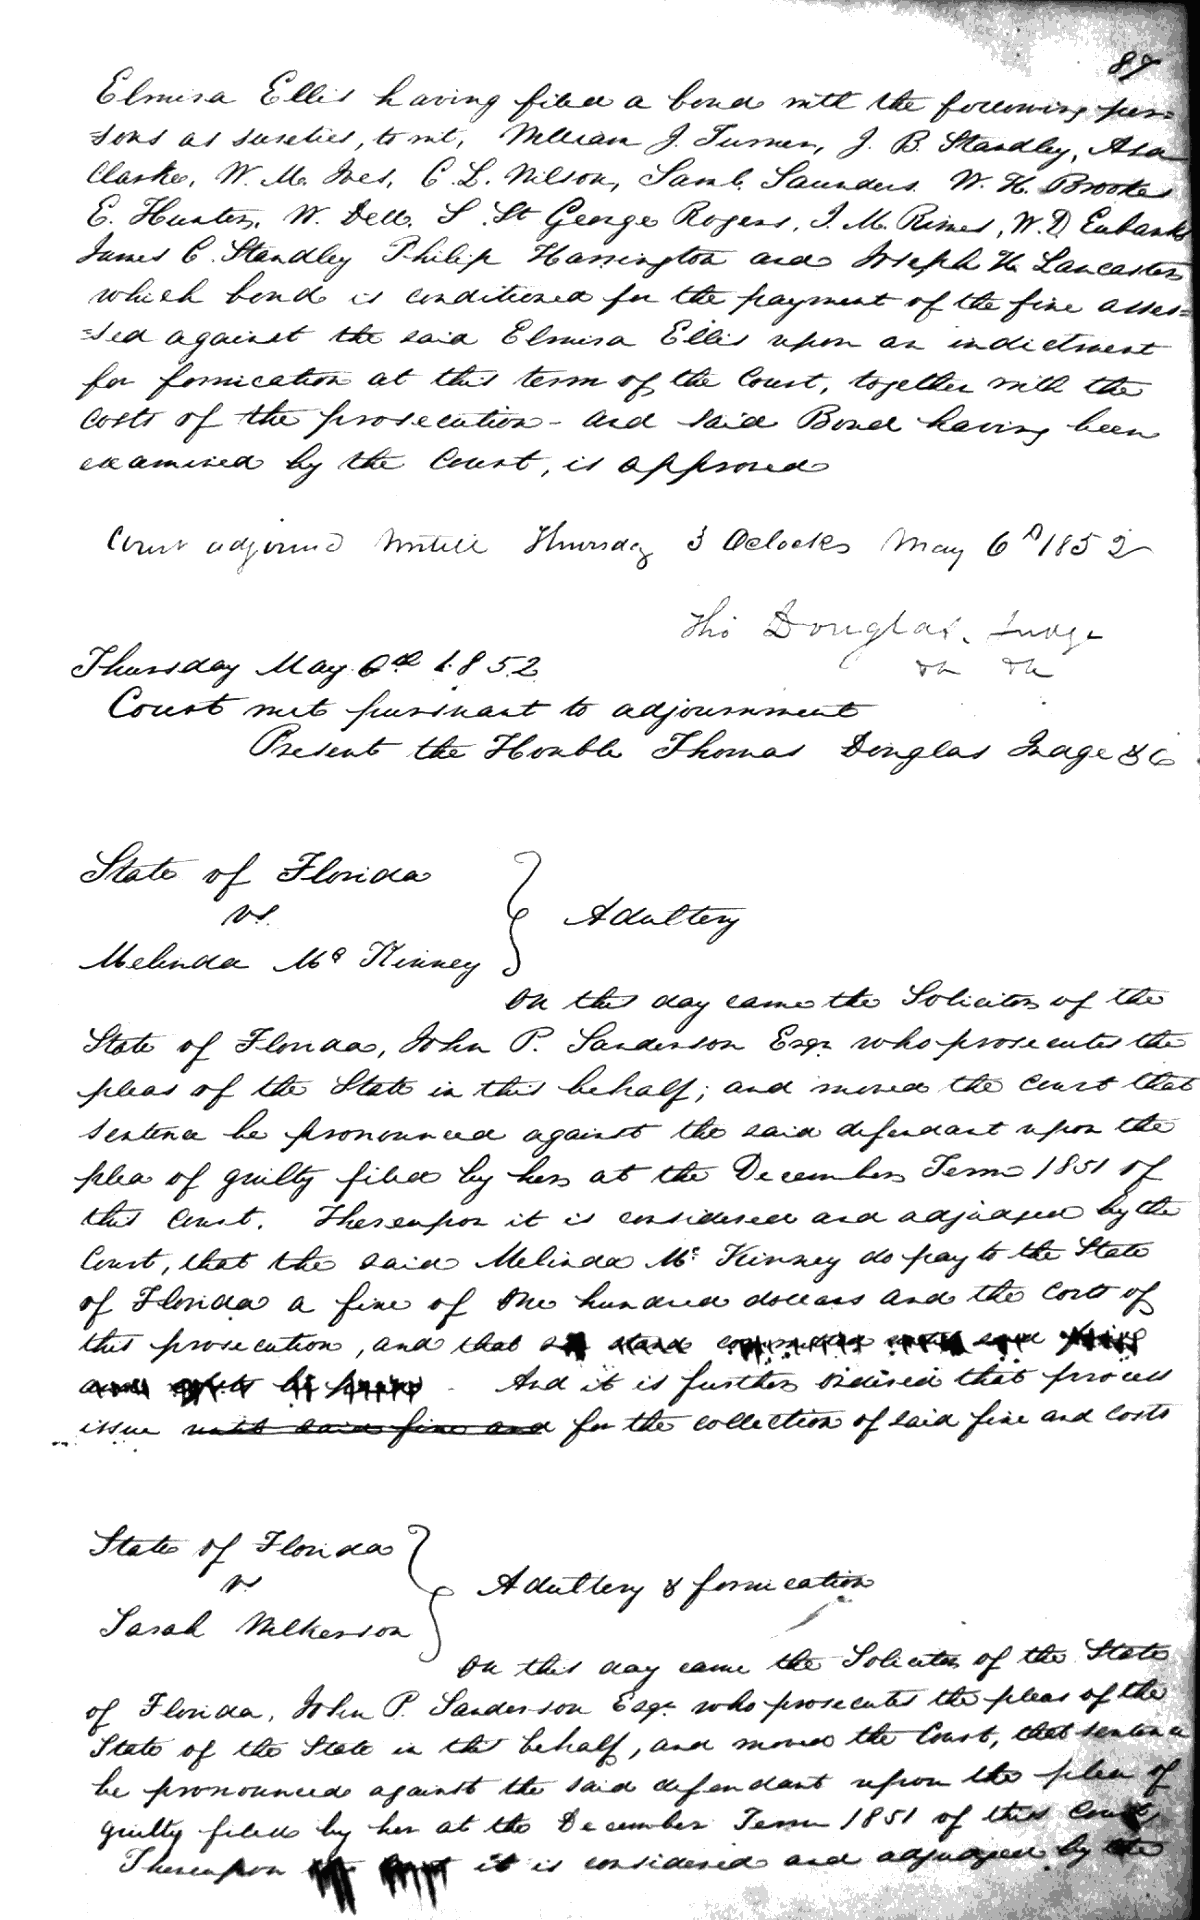 87
Elmira Ellis having filed a bond with the following per=
=sons as sureties, to wit, William J. Turner, J. B. Standley, Asa
Clarke, W. M. Ives, C. L. Wilson, Saml. Saunders W. H. Brooke
E. Hunter, W. Dell, S. St George Rogers, J. M. Rimes, W. D. Eubank
James C. Standley Philip Harrington and Joseph H Lancaster
which bond is conditioned for the payment of the fine asses=
=sed against the said Elmira Ellis upon an indictment
for fornication at this term of the Court, together with the
costs of the prosecution - and said Bond having been
examined by the Court, is approved
Court adjourned untill Thursday 3 Oclocks May 6th 1852
Tho Douglas, Judge
Thursday May 6th 1852
Court met pursuant to adjournment
Present the Honble Thomas Douglas Judge &c
State of Florida
vs.
Melinda Mc Kinney
Adultery
On this day came the Solicitor of the
State of Florida, John P. Sanderson Esqr who prosecutes the
pleas of the State in this behalf; and moved the court that
sentence be pronounced against the said defendant upon the
plea of guilty filed by her at the December Term 1851 of
this Court. Thereupon it is considered and adjudged by the
Court, that the said Melinda Mc Kinney do pay to the State
of Florida a fine of One hundred dollars and the costs of
this prosecution, and that stand committed until said
And it is further ordered that process
issue until said fine and for the collection of said fine and costs
State of Florida
vs
Sarah Wilkerson
Adultery & fornication
On this day came the Solicitor of the State
of Florida, John P. Sanderson Esqr who prosecutes the pleas of the
State of the State in this behalf, and moved the Court, that sentence
be pronounced against the said defendant upon the plea of
guilty filed by her at the December Term 1851 of this Court,
Thereupon it is considered and adjudged by the